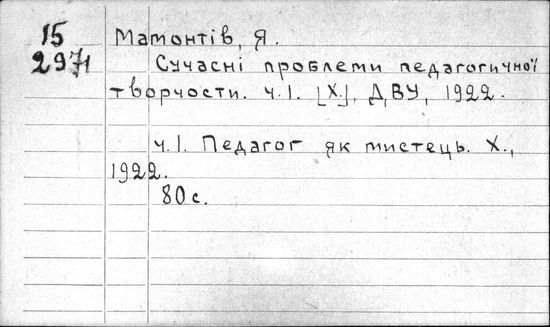 15
2971
Мамонтів, Я.
Сучасні проблеми педагогичної
творчости. ч.І. [Х.], ДВУ, 1922.
ч.І. Педагог як мистець. Х.,
1922.
80 с.